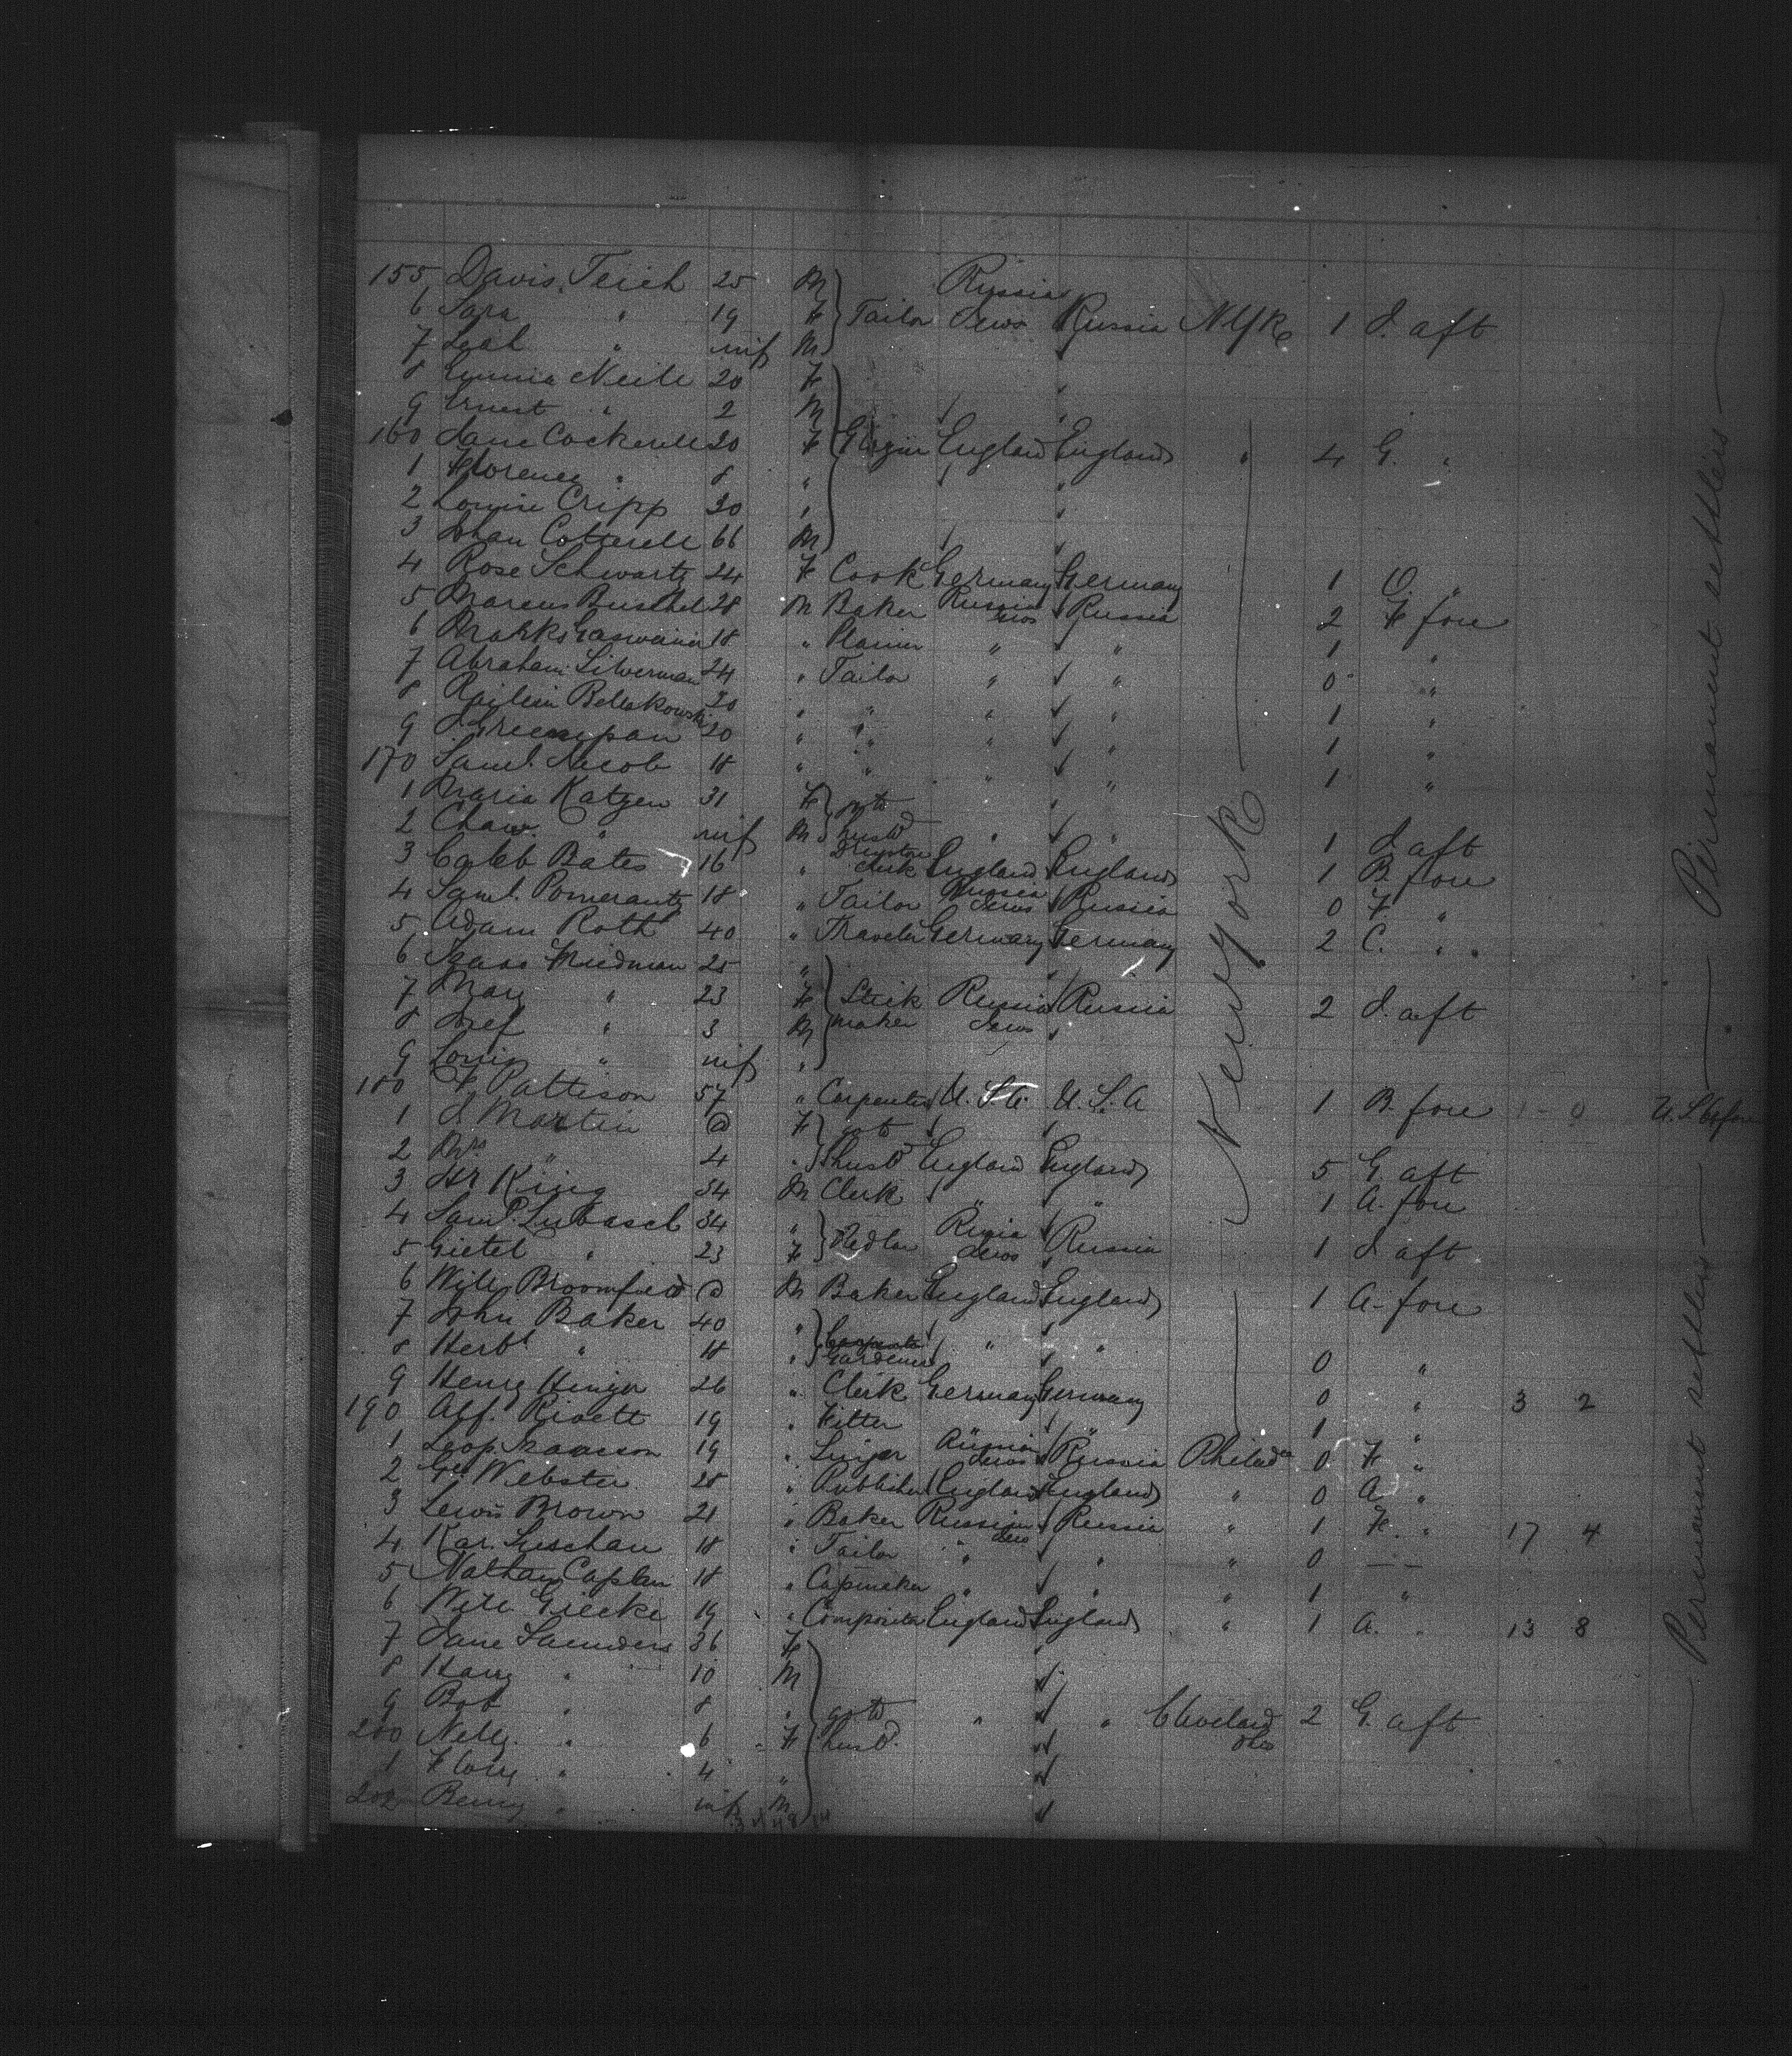 Russia
155 Davis Teich 25 M
6 Sara " 19 F Tailor Jews Russia NYk 1 J. aft
7 Leab " inf M
8 Emma Neill 20 F
9 Ernest " 2 M
160 Jane Cockerell 20 F England England " 4 G. "
1 Florence " 8 "
2 Louise Cripp 30 "
3 Johan Cotterell 66 M
4 Rose Schwartz 24 F Cook Germany Germany 1 "
5 Marcus Buschel 28 M Baker Russia Jews Russia 2 F fore
6 Markks 18 " " " 1 "
7 Abraham Silverman 24 " Tailor " " 0 "
8 Beleskowski 20 " " " " 1 "
9 J. Greenspan 20 " " " " 1 "
170 Saml. Jacob 18 " " " " 1 "
1 Maria Katzen 31 F go to
2 Chaw. " inf M husbd " " 1 J. aft
3 Caleb Bates 16 " clerk England England 1 B fore
4 Saml. Pomerantz 18 " Tailor Russia Jews Russia 0 F "
5 Adam Roth 40 " Traveler Germany Germany 2 C. "
6 Isaac Friedman 25 "
7 Mary " 23 F Stick Russia Russia 2 J. aft
8 Josef " 3 M maker Jews
9 Louis " inf "
180 F. Pattison 57 " Carpenter U.S.A. U.S.A 1 B. fore 1 - 0
1 J Martin @ F go to
2 Mrs " 4 " husbd England England 5 G aft
3 Hr King 34 M Clerk " " 1 A. fore
4 Saml. Lubasch 34 " Pedlar Russia Russia
5 Gietel " 23 F Jews 1 J aft
6 Will Broomfield @ M Baker England England 1 A - fore
7 John Baker 40 " Carpenter
8 Herbt " 18 " Gardener " " 0 "
9 Henry 26 " Clerk Germany Germany 0 " 3 2
190 Alf. Rivett 19 " Fitter " " 1 "
1 Leop. Isaacson 19 " Russian Jews Russia Philada 0 F "
2 Geo Webster 28 " Publisher England England " 0 A "
3 Lewis Brown 21 " Baker Russian Jews Russia " 1 F. " 17 4
4 Kar. 18 " Tailor " " " 0 — —
5 Nathan Caplan 18 " Capmaker " " " 1 "
6 Will. Giecke 19 " Compositor England England " 1 A. " 13 8
7 Jane Saunders 36 F
8 Harry " 10 M
9 Bob " 8 " go to " " Cleveland 2 G. aft
200 Nelly " 6 F husbd. Ohio
1 Flory " 4 "
202 Benny " inf M
New York
Permanent settlers
Permanent settlers